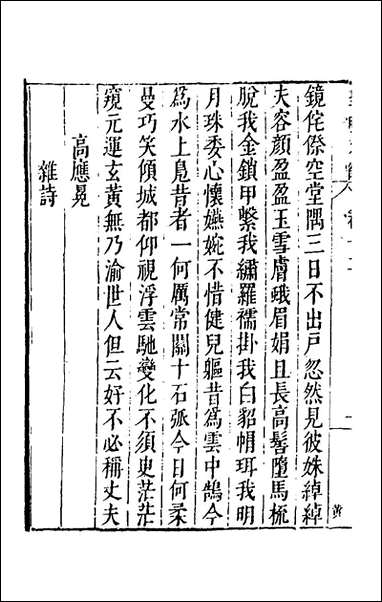 鏡侘傺空堂隅三日不出戸忽然見彼姝綽綽
夫容顏盈盈玉雪膚蛾眉娟且長高髻墮馬梳
脫我金鎖甲繫我繡羅襦掛我白貂帽珥我明
月珠委心懷嬿婉不惜健兒軀昔爲雲中鵠今
爲水上鳧昔者一何厲常關十石弧今日何柔
曼巧笑傾城都仰視浮雲馳變化不須臾茫茫
窺元運玄黃無乃渝世人但云好不必稱丈夫
高應冕
雜詩